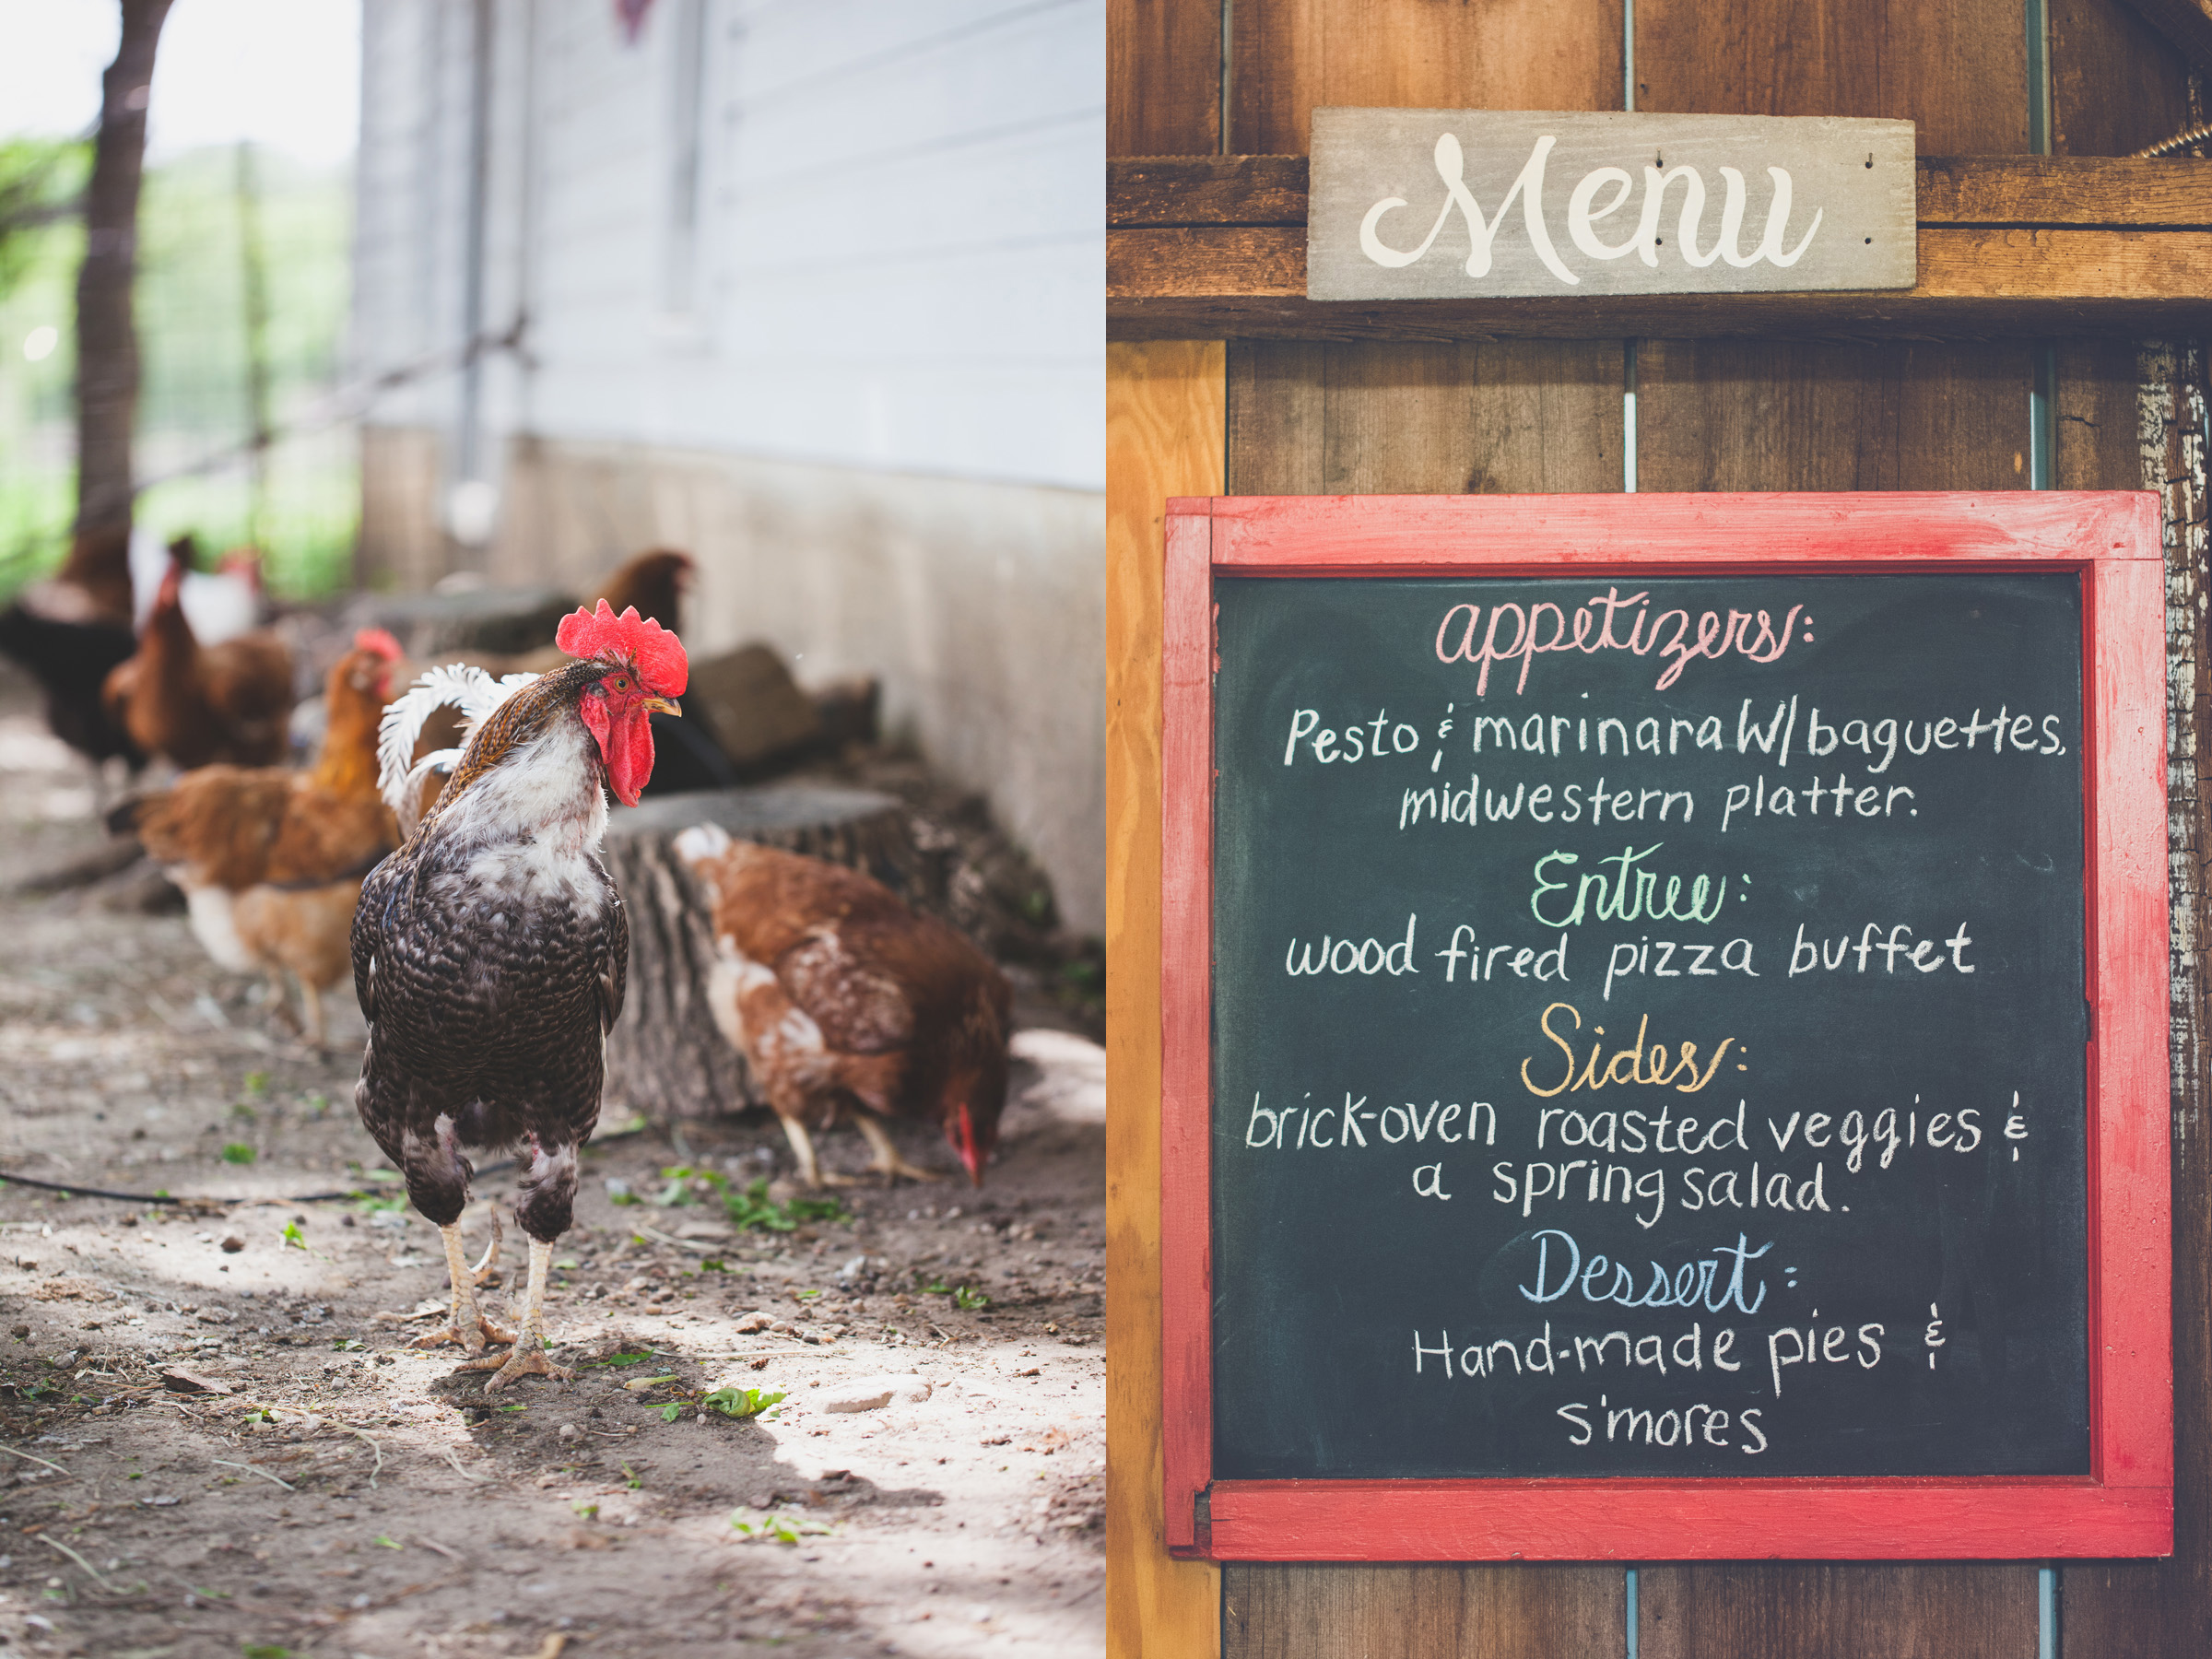 Menu
appetizers:
Pesto & marinara W/ baguettes,
midwestern platter.
Entree:
wood fired pizza buffet
Sides:
brick-oven roasted veggies &
a spring salad.
Dessert:
Hand-made pies &
s'mores